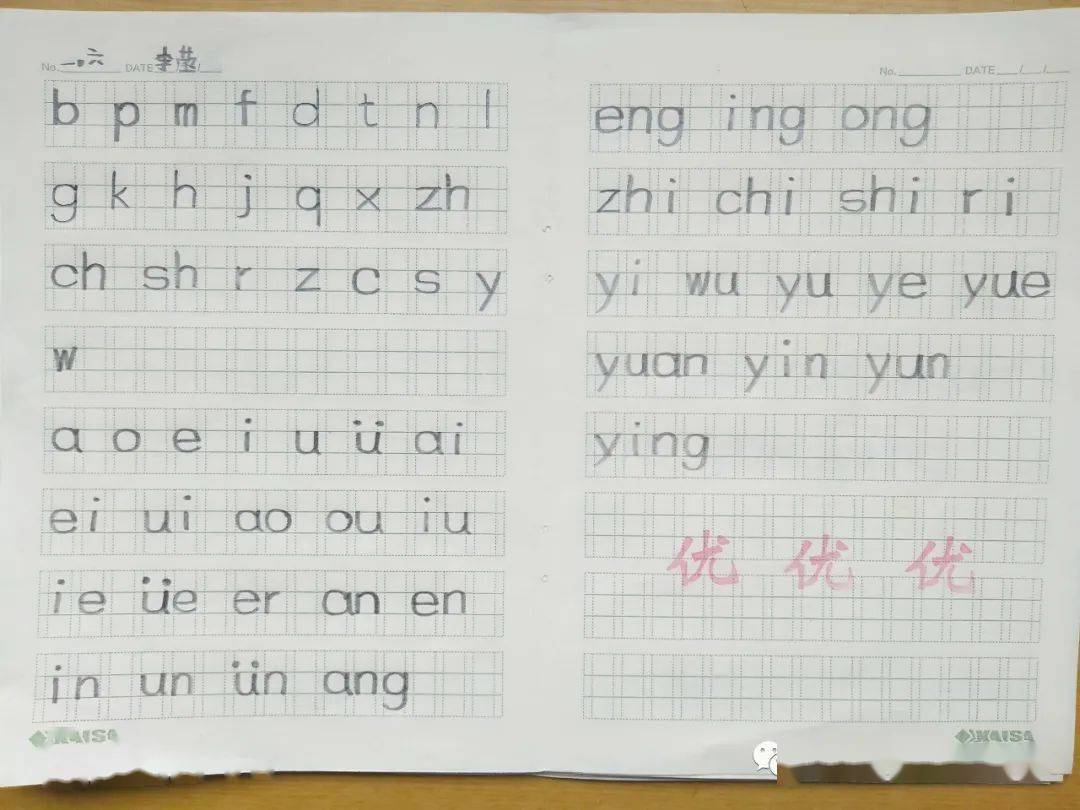 No. 一.六 DATE 李
b p m f d t n l
g k h j q x zh
ch sh r z c s y
w
a o e i u ü ai
ei ui ao ou iu
ie üe er an en
in un ün ang
KAISA
No. DATE / /
eng ing ong
zhi chi shi ri
yi wu yu ye yue
yuan yin yun
ying
优 优 优
KAISA